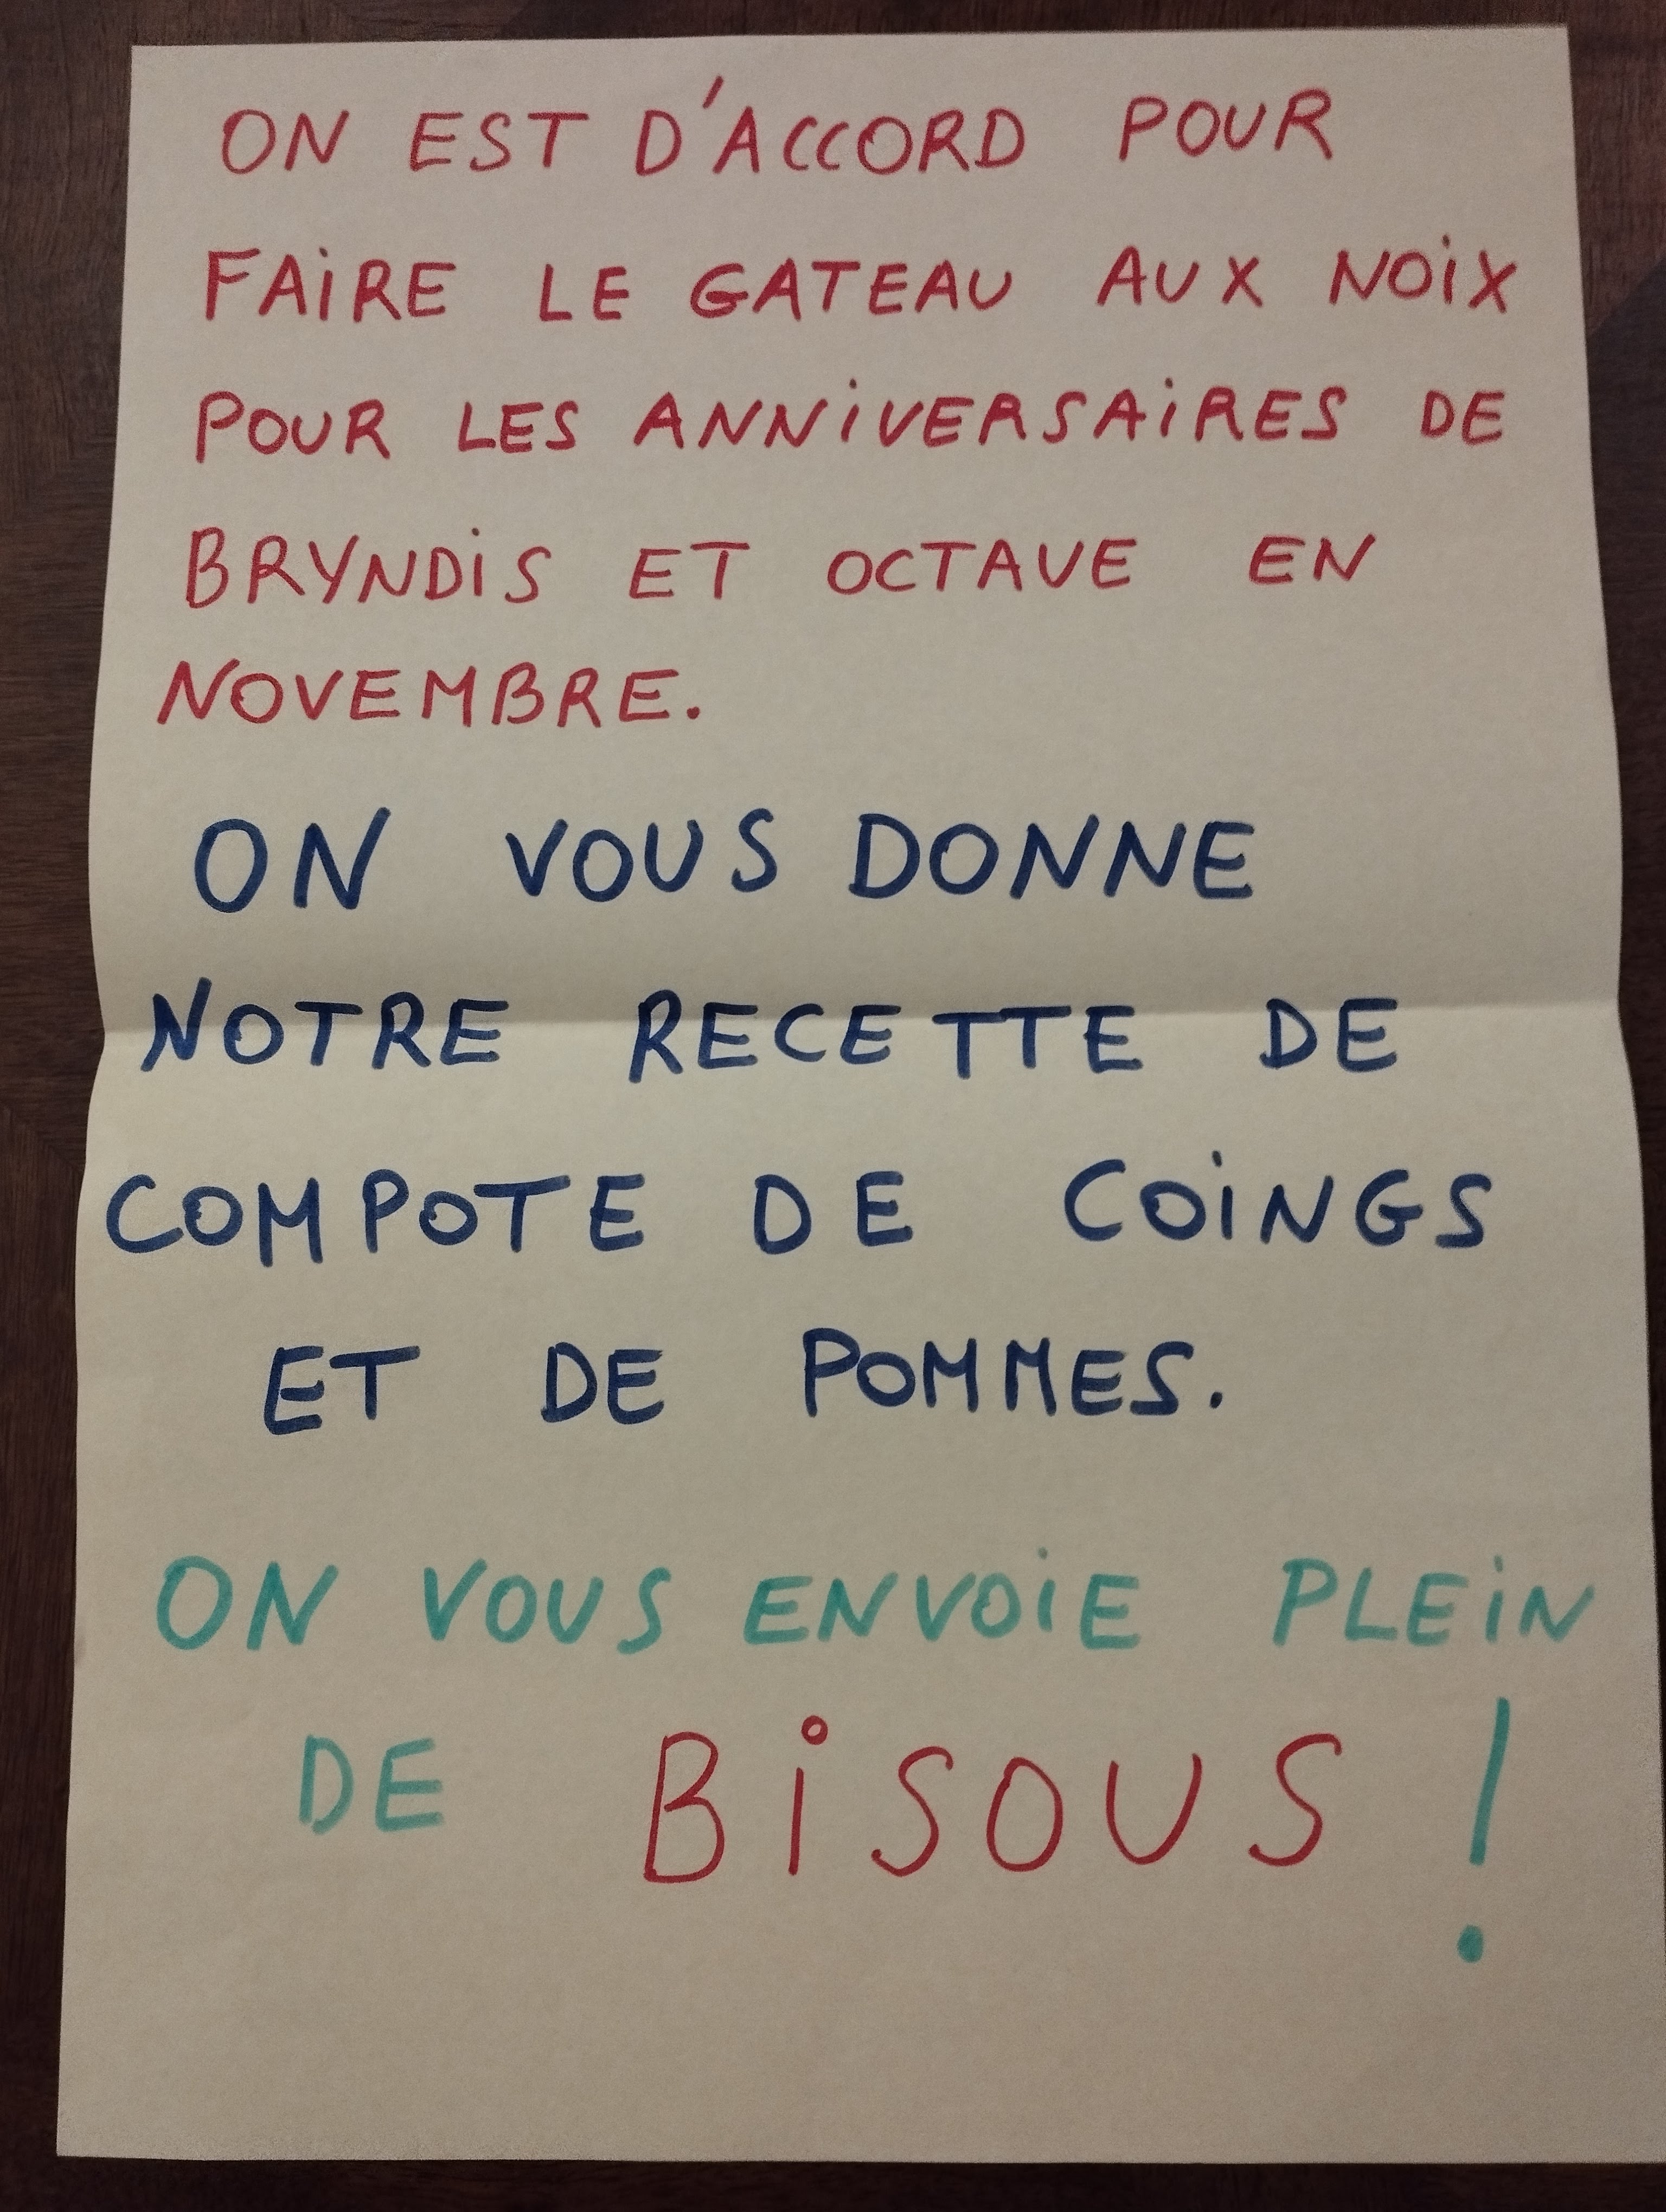 ON EST D'ACCORD POUR
FAiRE LE GATEAU AUX NOiX
POUR LES ANNiVERSAiRES DE
BRYNDiS ET OCTAVE EN
NOVEMBRE.
ON VOUS DONNE
NOTRE RECETTE DE
COMPOTE DE COiNGS
ET DE POMMES.
ON VOUS ENVOiE PLEiN
DE BiSOUS !